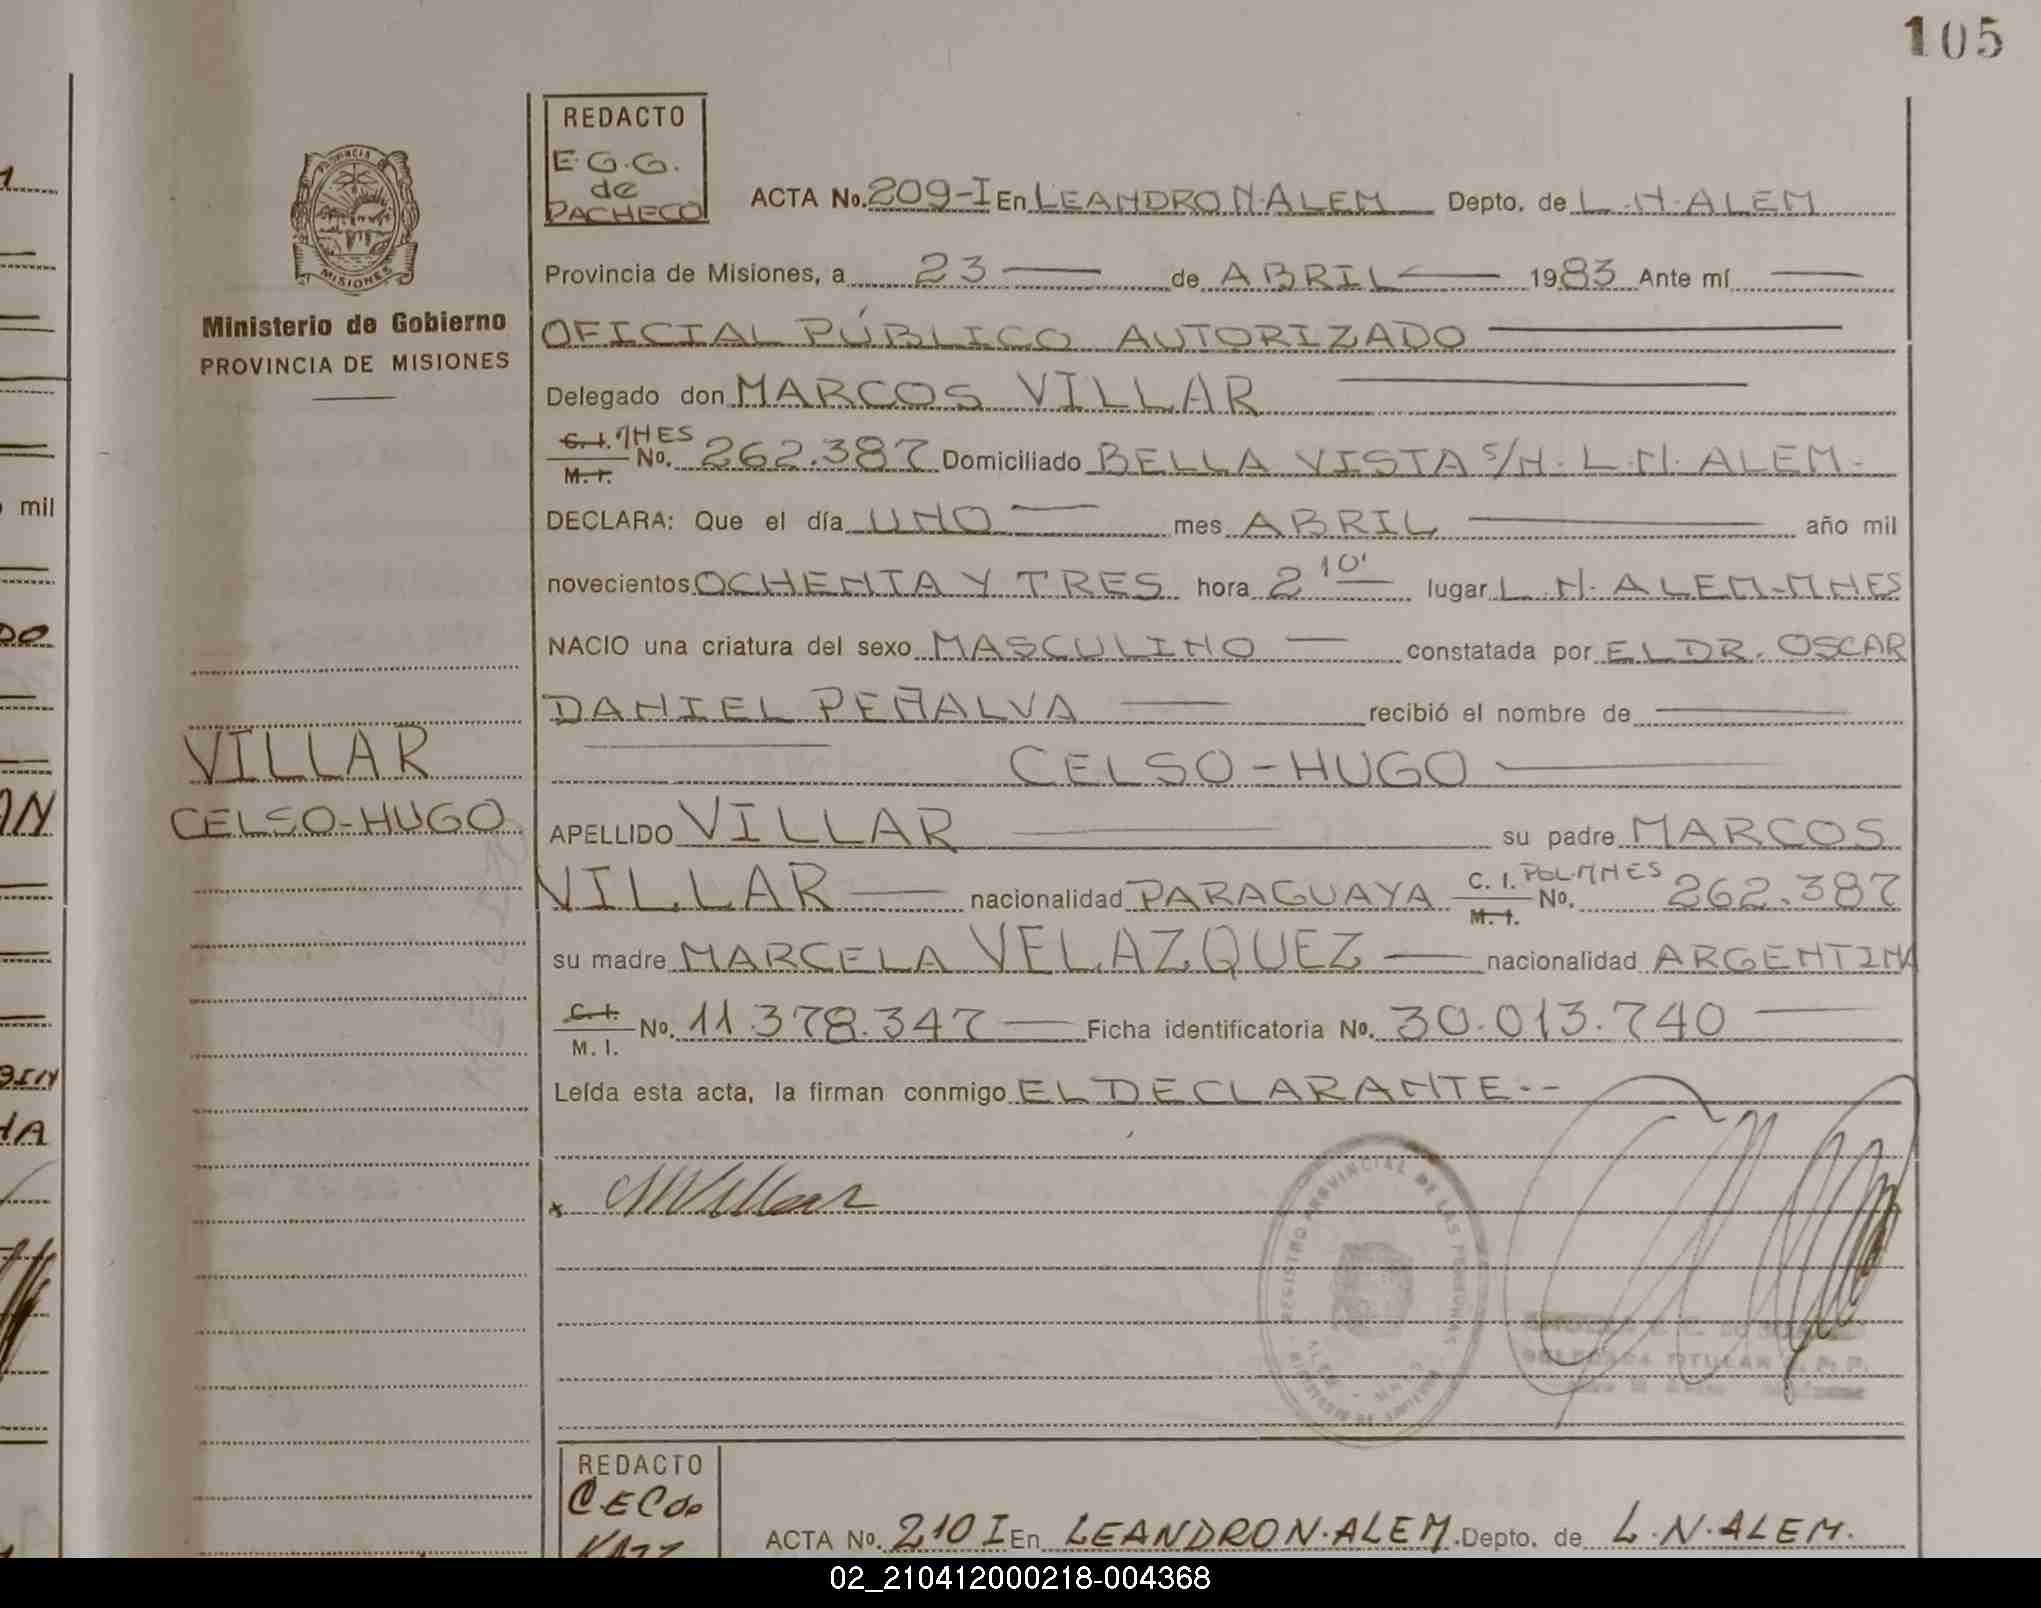 105
REDACTO
E.G.G.
de
PACHECO
ACTA No. 209-I En LEANDRO N. ALEM Depto. de L.N. ALEM
PROVINCIA
MISIONES
Ministerio de Gobierno
PROVINCIA DE MISIONES
Provincia de Misiones, a 23 de ABRIL 1983 Ante mí
OFICIAL PÚBLICO AUTORIZADO
Delegado don MARCOS VILLAR
C. I. MNES
M. I. No. 262.387 Domiciliado BELLA VISTA S/N. L.N. ALEM-
DECLARA: Que el día UNO mes ABRIL año mil
novecientos OCHENTA Y TRES hora 2 10' lugar L.N. ALEM-MNES
NACIO una criatura del sexo MASCULINO constatada por EL DR. OSCAR
DANIEL PEÑALVA recibió el nombre de
CELSO-HUGO
VILLAR
CELSO-HUGO
APELLIDO VILLAR su padre MARCOS
VILLAR nacionalidad PARAGUAYA C. I. POL. MNES M. I. No. 262.387
su madre MARCELA VELAZQUEZ nacionalidad ARGENTINA
C. I.
M. I. No. 11.378.347 Ficha identificatoria No. 30.013.740
Leída esta acta, la firman conmigo EL DECLARANTE.--
x MVillar
REGISTRO PROVINCIAL DE LAS PERSONAS
DELEGADA TITULAR R. P. P.
REDACTO
ACTA No. 210 I En LEANDRO N. ALEM. Depto. de L.N. ALEM.
mil
02_210412000218-004368